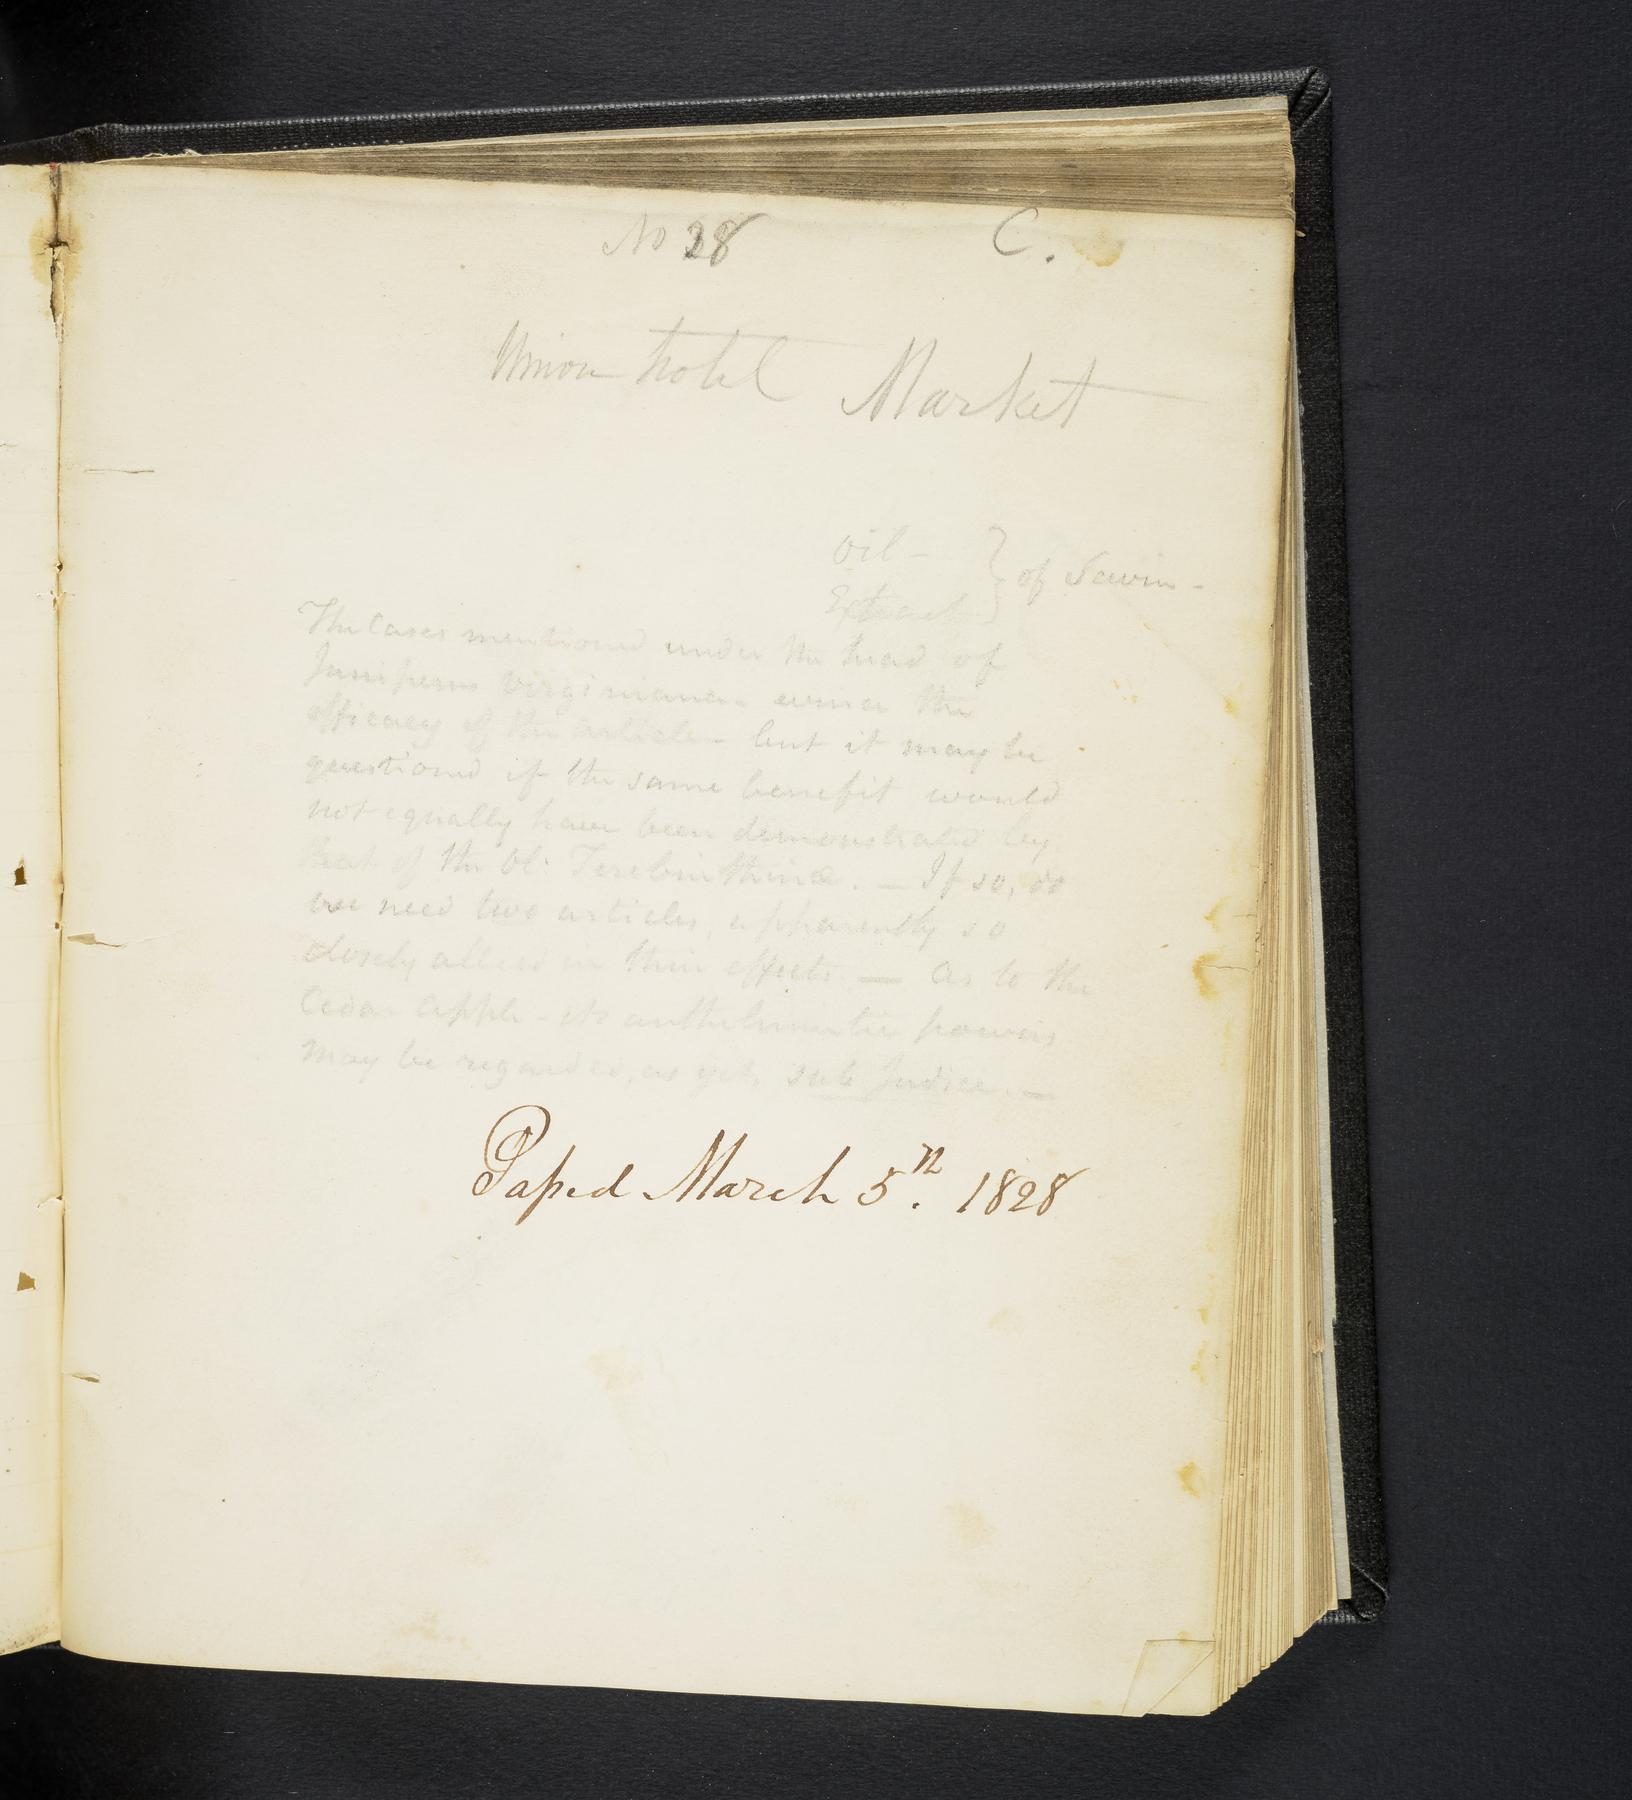 No 28 C.
Union hotel Market
oil -
Extract } of Savin -
The Cases mentioned under the head of
Juniperus Virginiana - evince the
efficacy of the article - but it may be
questioned if the same benefit would
not equally have been demonstrated by
that of the Ol: Terebinthinae. - If so, do
we need two articles, apparently so
closely allied in their effects - As to the
Cedar apple - its anthelmintic powers
may be regarded, as yet, sub Judice. -
Paſsed March 5th. 1828